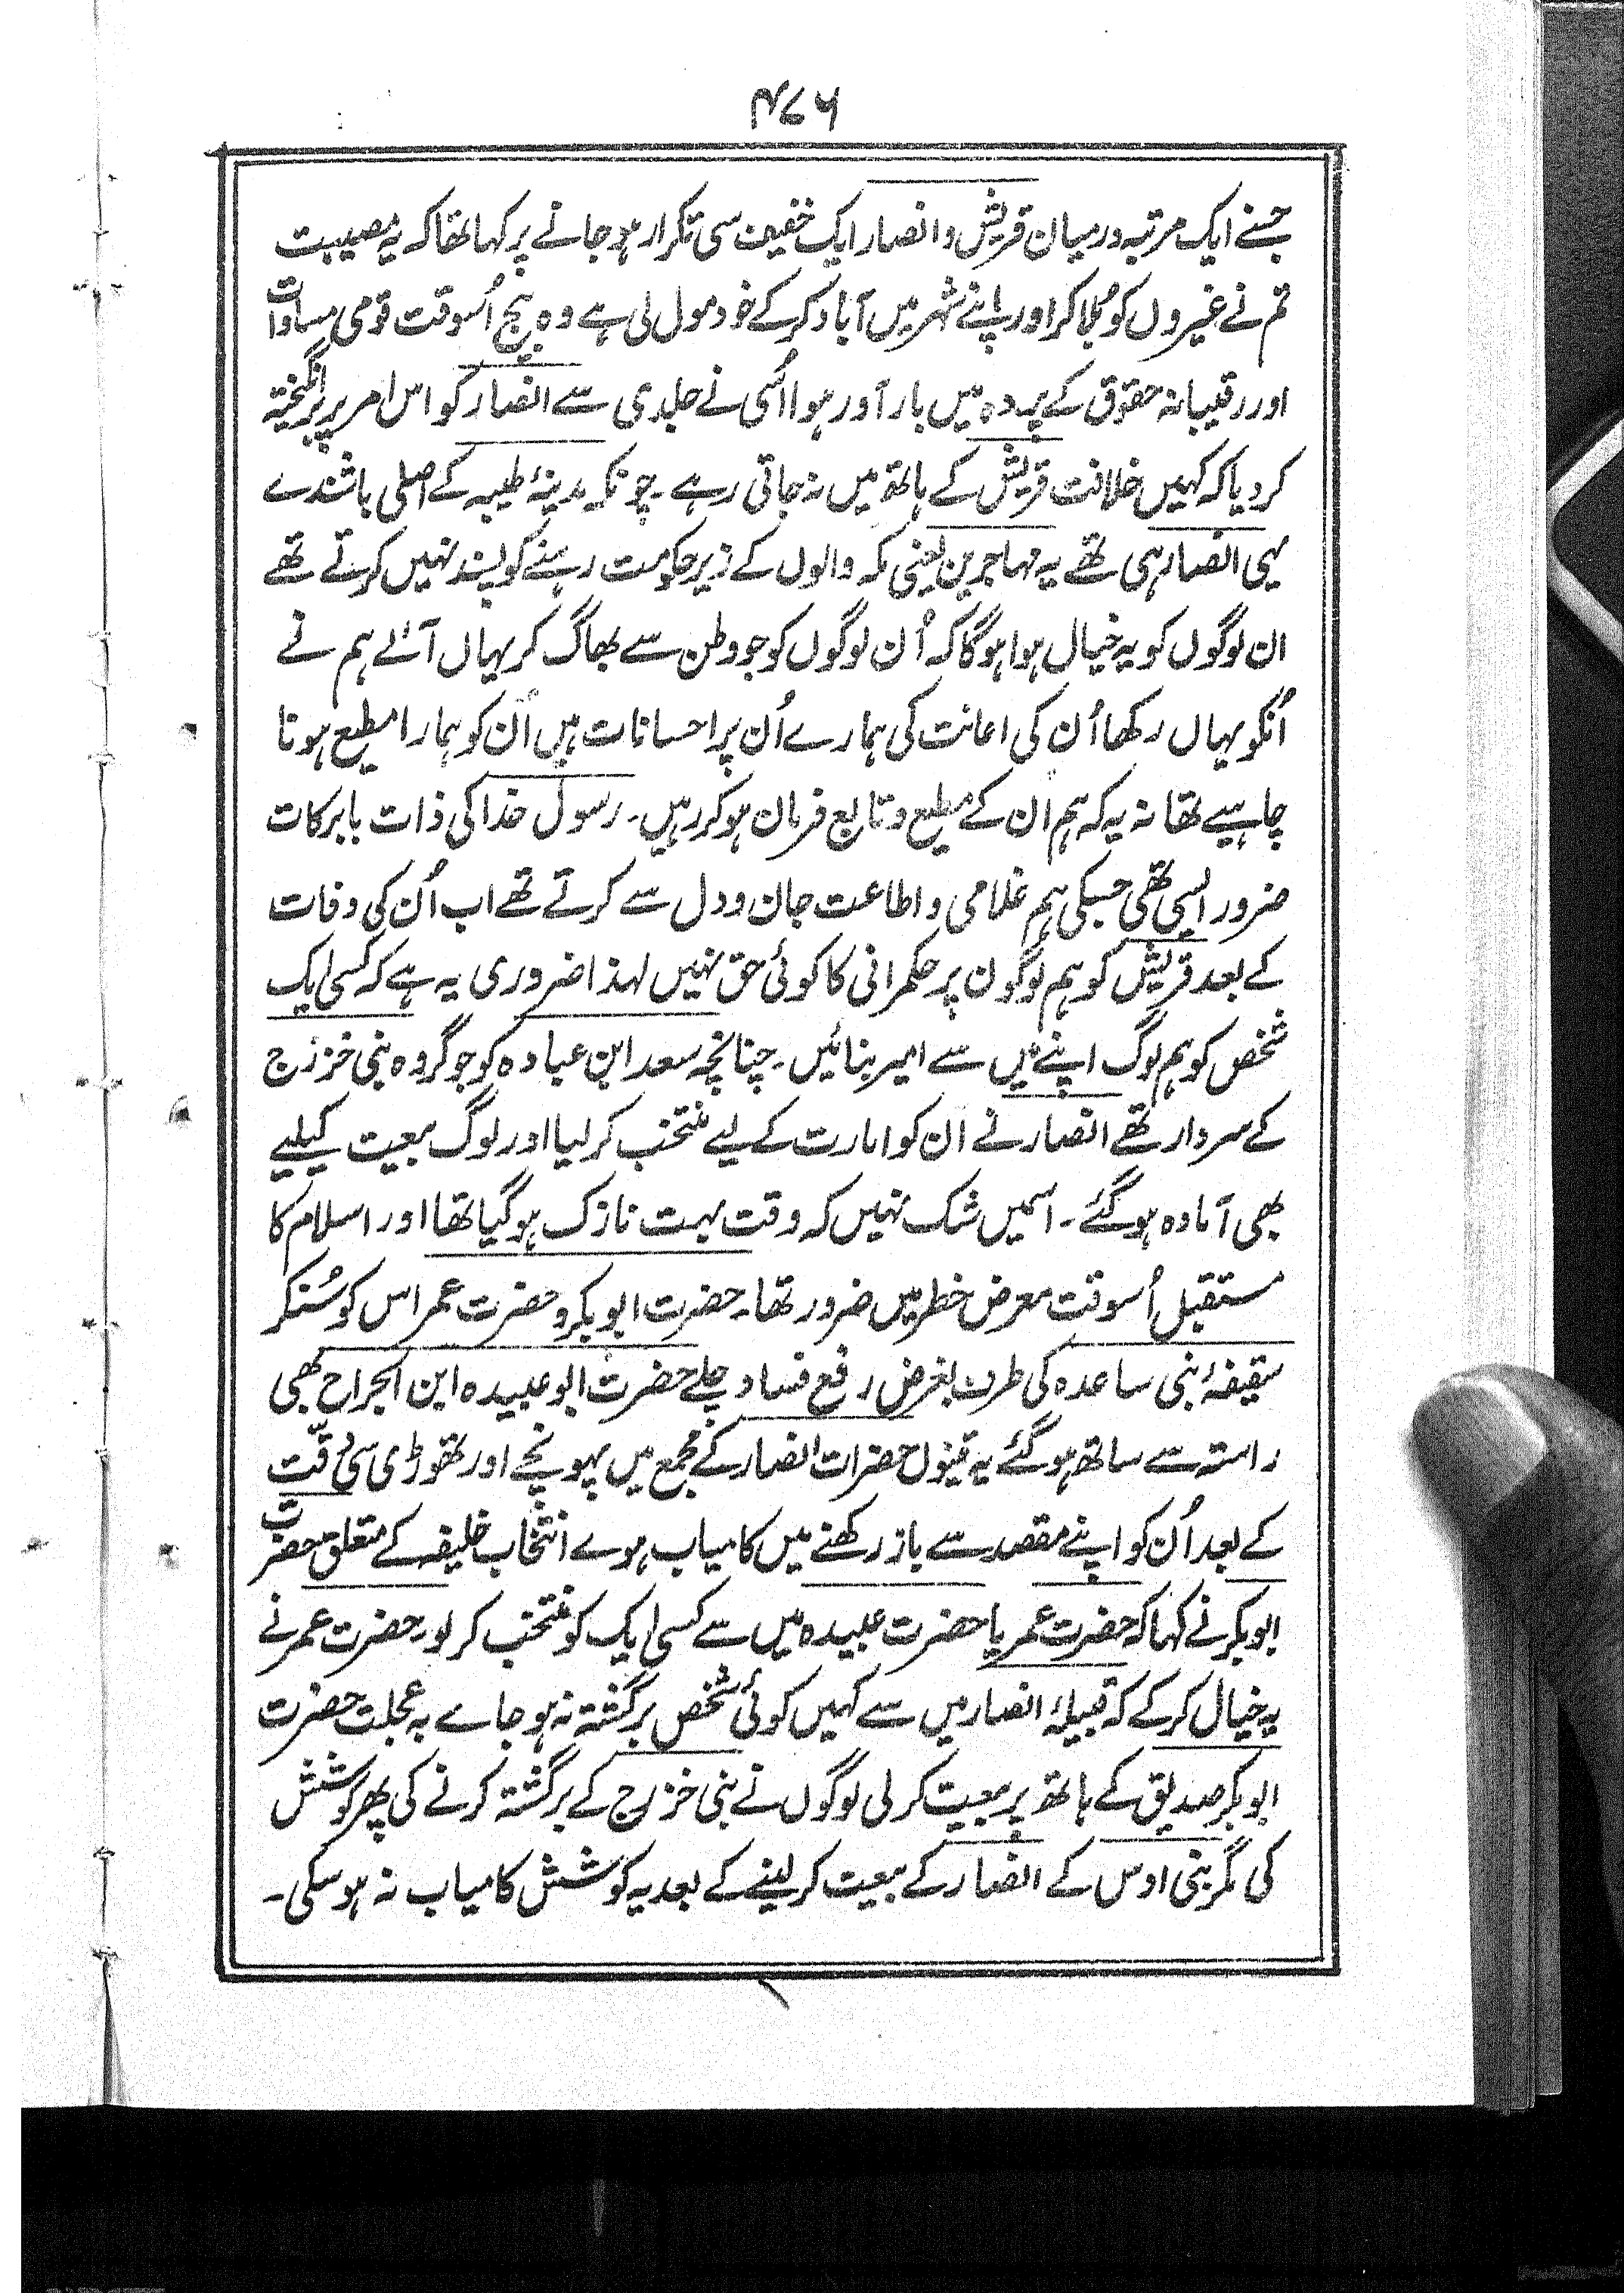 ۴۷۶
جسنے ایک مرتبہ درمیان قریش و انصار ایک خفیف سی تکرار ہو جانے پر کہا تھا کہ یہ مصیبت
تم نے غیروں کو بُلا کر اور اپنے شہر میں آباد کر کے خود مول لی ہے وہ بیج اُسوقت قومی مساوات
اور رقیبانہ حقوق کے پردہ میں بار آور ہوا اُسی نے جلدی سے انصار کو اس امر پر برانگیختہ
کر دیا کہ کہیں خلافت قریش کے ہاتھ میں نہ جاتی رہے۔ چونکہ مدینۂ طیبہ کے اصلی باشندے
یہی انصار ہی تھے یہ مہاجرین یعنی مکہ والوں کے زیر حکومت رہنے کو پسند نہیں کرتے تھے
ان لوگوں کو یہ خیال ہوا ہوگا کہ اُن لوگوں کو جو وطن سے بھاگ کر یہاں آئے ہم نے
اُنکو یہاں رکھا اُن کی اعانت کی ہمارے اُن پر احسانات ہیں اُن کو ہمارا مطیع ہونا
چاہیے تھا نہ یہ کہ ہم ان کے مطیع و تابع فرمان ہو کر رہیں۔ رسول خدا کی ذات بابرکات
ضرور ایسی تھی جسکی ہم غلامی و اطاعت جان و دل سے کرتے تھے اب اُن کی وفات
کے بعد قریش کو ہم لوگون پر حکمرانی کا کوئی حق نہیں لہذا ضروری یہ ہے کہ کسی ایک
شخص کو ہم لوگ اپنے میں سے امیر بنائیں۔ چنانچہ سعد ابن عبادہ کو جو گروہ بنی خزرج
کے سردار تھے انصار نے ان کو امارت کے لیے منتخب کر لیا اور لوگ بیعت کیلیے
بھی آمادہ ہو گئے۔ اسمیں شک نہیں کہ وقت بہت نازک ہو گیا تھا اور اسلام کا
مستقبل اُسوقت معرض خطر میں ضرور تھا۔ حضرت ابو بکر و حضرت عمر اس کو سُنکر
سقیفۂ بنی ساعدہ کی طرف بغرض رفع فساد چلے حضرت ابو عبیدہ ابن الجراح بھی
راستہ سے ساتھ ہو گئے یہ تینوں حضرات انصار کے مجمع میں پہونچے اور تھوڑی سی دقّت
کے بعد اُن کو اپنے مقصد سے باز رکھنے میں کامیاب ہوے انتخاب خلیفہ کے متعلق حضرت
ابو بکر نے کہا کہ حضرت عمر یا حضرت عبیدہ میں سے کسی ایک کو منتخب کر لو۔ حضرت عمر نے
یہ خیال کر کے کہ قبیلۂ انصار میں سے کہیں کوئی شخص برگشتہ نہ ہو جاے بہ عجلت حضرت
ابو بکر صدیق کے ہاتھ پر بیعت کر لی لوگوں نے بنی خزرج کے برگشتہ کرنے کی پھر کوشش
کی مگر بنی اوس کے انصار کے بیعت کر لینے کے بعد یہ کوشش کامیاب نہ ہو سکی۔